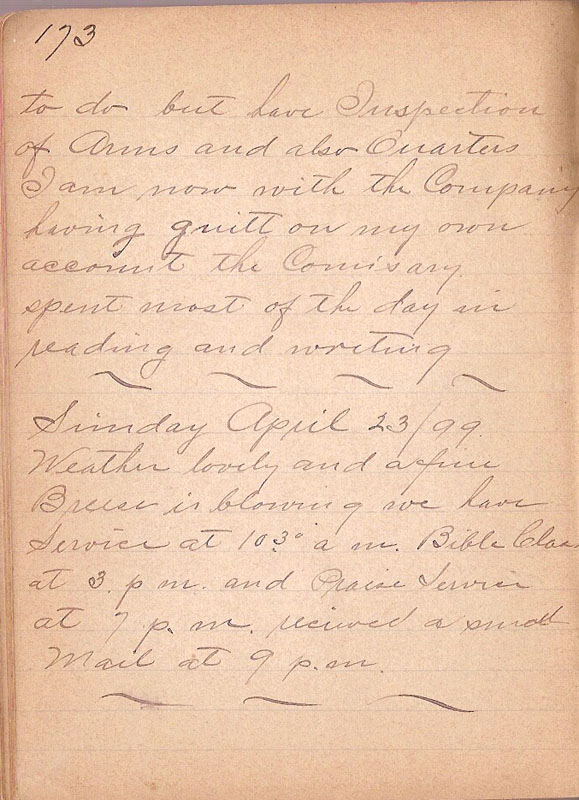 173
to do but have Inspection
of Arms and also Quarters
I am now with the Company
having quitt on my own
account the Comisary
spent most of the day in
reading and writing
Sunday April 23/99
Weather lovely and a fine
Breese is blowing we have
Service at 10 30 a m. Bible Class
at 3. p m. and Praise Service
at 7 p. m. recieved a small
Mail at 9 p.m.